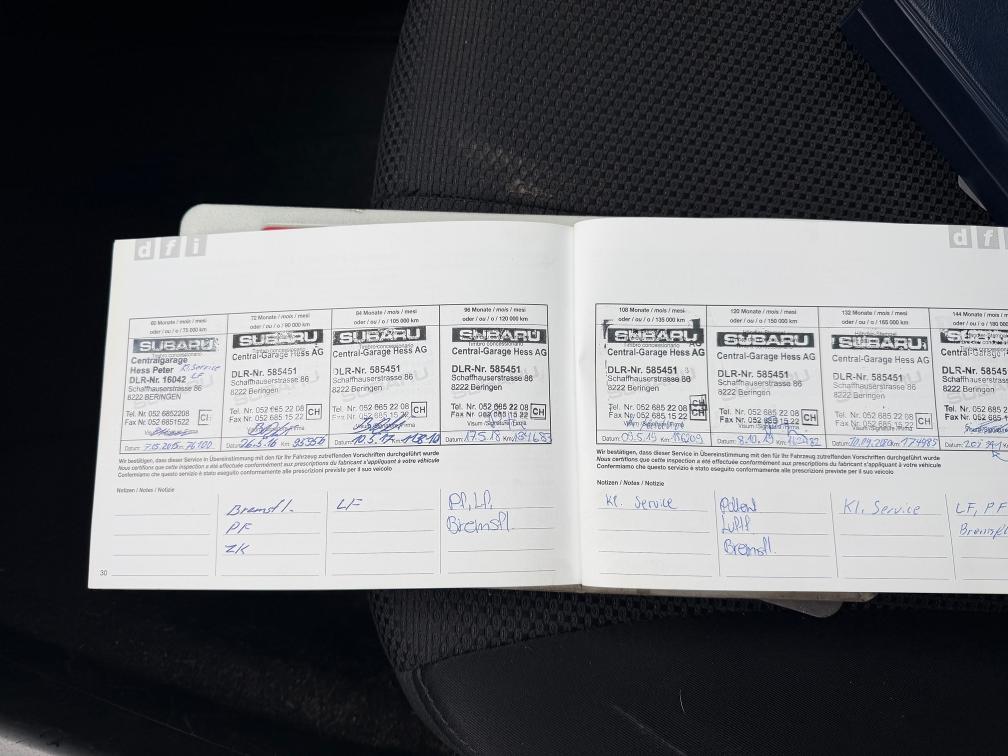 dfi
60 Monate / mois / mesi
oder / ou / o / 75 000 km
SUBARU
Centralgarage
Hess Peter
Kl. Service
LF
DLR-Nr. 16042
Schaffhauserstrasse 86
8222 BERINGEN
Tel. Nr. 052 6852208
Fax Nr. 052 6851522
CH
Datum: 7.5.2015 Km: 76100
72 Monate / mois / mesi
oder / ou / o / 90 000 km
SUBARU
Central-Garage Hess AG
DLR-Nr. 585451
Schaffhauserstrasse 86
8222 Beringen
Tel. Nr. 052 685 22 08
Fax Nr. 052 685 15 22
CH
Datum: 26.5.16 Km: 95956
84 Monate / mois / mesi
oder / ou / o / 105 000 km
SUBARU
Timbro concessionario
Central-Garage Hess AG
DLR-Nr. 585451
Schaffhauserstrasse 86
8222 Beringen
Tel. Nr. 052 685 22 08
Fax Nr. 052 685 15 22
CH
Datum: 10.5.17
96 Monate / mois / mesi
oder / ou / o / 120 000 km
SUBARU
Timbro concessionario
Central-Garage Hess AG
DLR-Nr. 585451
Schaffhauserstrasse 86
8222 Beringen
Tel. Nr. 052 685 22 08
Fax Nr. 052 685 15 22
CH
Visum / Signature / Firma
Datum: 17.5.18 Km:
Wir bestätigen, dass dieser Service in Übereinstimmung mit den für Ihr Fahrzeug zutreffenden Vorschriften durchgeführt wurde
Nous certifions que cette inspection a été effectuée conformément aux prescriptions du fabricant s'appliquant à votre véhicule
Confermiamo che questo servizio è stato eseguito conformemente alle prescrizioni previste per il suo veicolo
Notizen / Notes / Notizie
Bremsfl.
PF
ZK
LF
PF, LF,
Bremsfl.
30
df
108 Monate / mois / mesi
oder / ou / o / 135 000 km
SUBARU
Central-Garage Hess AG
DLR-Nr. 585451
Schaffhauserstrasse 86
8222 Beringen
Tel. Nr. 052 685 22 08
Fax Nr. 052 685 15 22
CH
Visum / Signature / Firma
Datum: 09.5.19 Km:
120 Monate / mois / mesi
oder / ou / o / 150 000 km
SUBARU
Central-Garage Hess AG
DLR-Nr. 585451
Schaffhauserstrasse 86
8222 Beringen
Tel. Nr. 052 685 22 08
Fax Nr. 052 685 15 22
CH
Visum / Signature / Firma
Datum: 8.10.19 Km:
132 Monate / mois / mesi
oder / ou / o / 165 000 km
SUBARU
Central-Garage Hess AG
DLR-Nr. 585451
Schaffhauserstrasse 86
8222 Beringen
Tel. Nr. 052 685 22 08
Fax Nr. 052 685 15 22
CH
Km: 174985
144 Monate / mois
oder / ou / o / 180 00
SUBAR
Central-Garage
DLR-Nr. 5854
Schaffhauserst
8222 Beringen
Tel. Nr. 052 68
Fax Nr. 052 68
Datum:
Wir bestätigen, dass dieser Service in Übereinstimmung mit den für Ihr Fahrzeug zutreffenden Vorschriften durchgeführt wurde
Nous certifions que cette inspection a été effectuée conformément aux prescriptions du fabricant s'appliquant à votre véhicule
Confermiamo che questo servizio è stato eseguito conformemente alle prescrizioni previste per il suo veicolo
Notizen / Notes / Notizie
Kl. Service
Pollen
Luftf
Bremsfl.
Kl. Service
LF, PF
Bremsfl